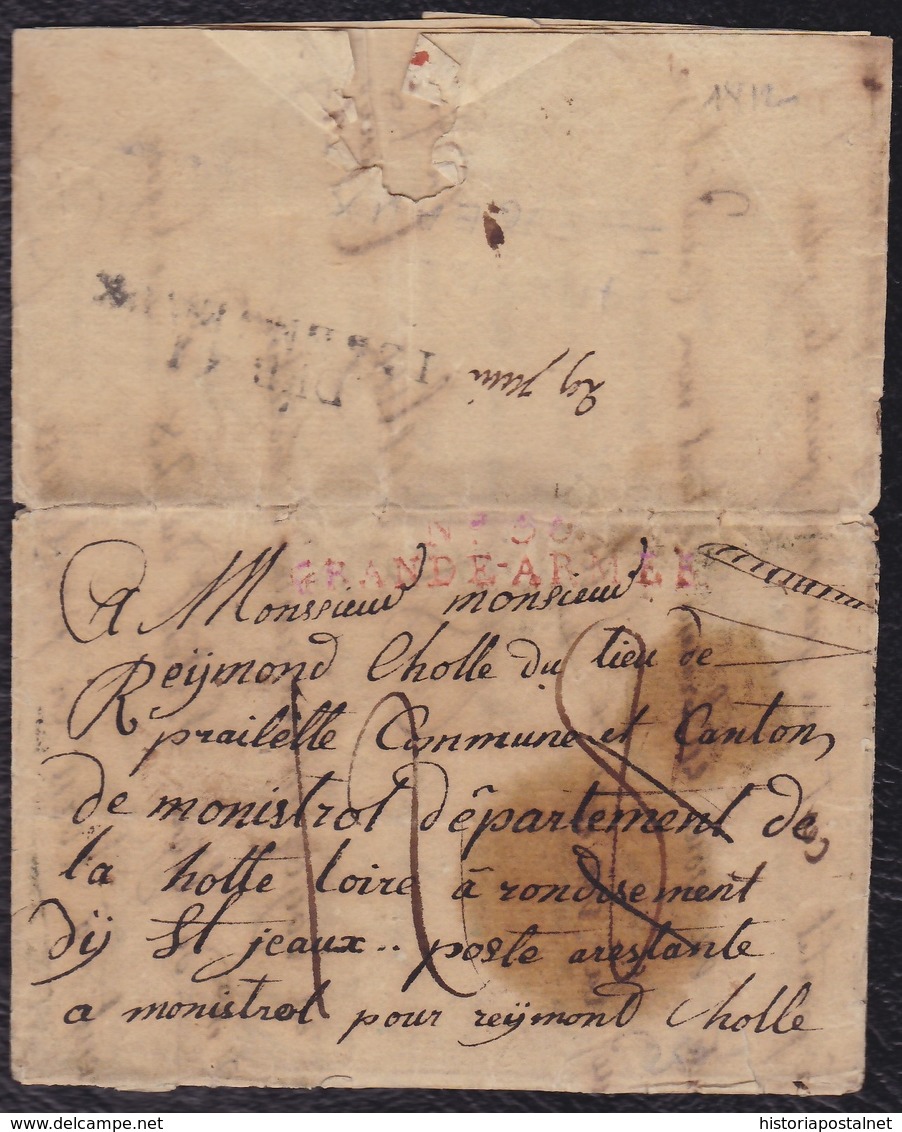 1812
DEB. 41
29 juin
GRANDE-ARMÉE
A Monssieur monsieur
Reÿmond Cholle du lieu de
prailette Commune et Canton
de monistrol dêpartement de
la hotte loire â rondisement
dÿ St jeaux.. poste arestante
a monistrol pour reÿmond Cholle
historiapostalnet